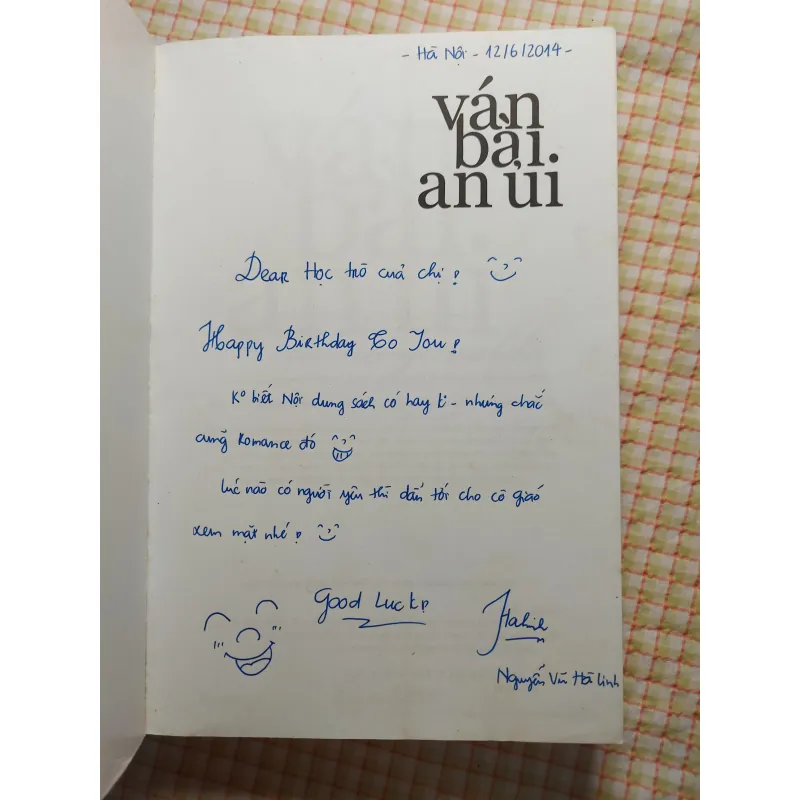 - Hà Nội - 12/6/2014 -
ván
bài
an ủi
Dear Học trò của chị!
Happy Birthday To You!
Ko biết Nội dung sách có hay k - nhưng chắc
cũng Romance đó
lúc nào có người yêu thì dẫn tới cho cô giáo
xem mặt nhé!
Good Luck!
Halinh
Nguyễn Vũ Hà Linh